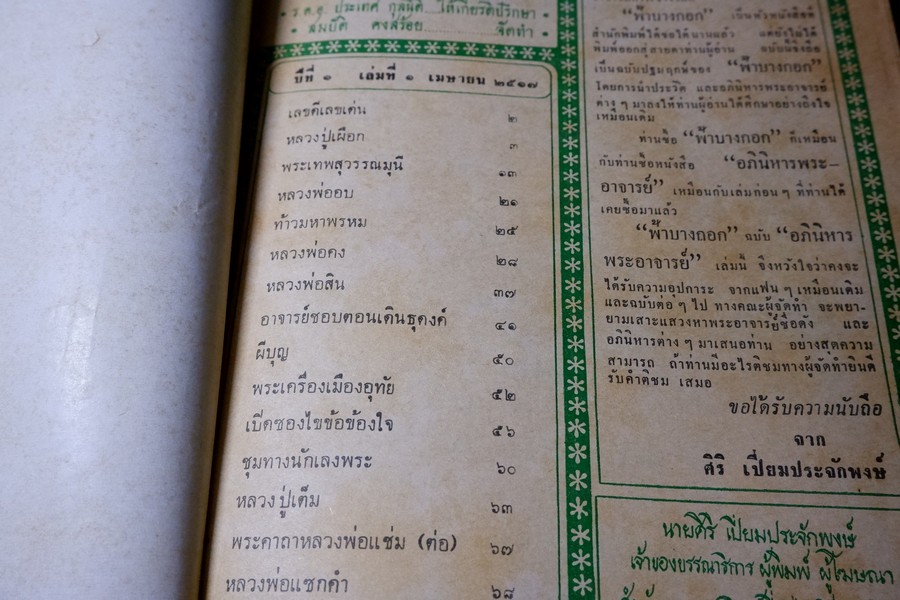 ร.ต.อ ประเทศ กุลนิติ ... ให้เกียรติปรึกษา
สมบัติ คงสร้อย ............ จัดทำ
ปีที่ ๑ เล่มที่ ๑ เมษายน ๒๕๑๗
เลขดีเลขเด่น ๒
หลวงปู่เผือก ๓
พระเทพสุวรรณมุนี ๑๓
หลวงพ่ออบ ๒๑
ท้าวมหาพรหม ๒๕
หลวงพ่อคง ๒๘
หลวงพ่อสิน ๓๗
อาจารย์ชอบตอนเดินธุดงค์ ๔๑
ผีบุญ ๕๐
พระเครื่องเมืองอุทัย ๕๒
เบิดซองไขข้อข้องใจ ๕๖
ชุมทางนักเลงพระ ๖๐
หลวงปู่เต็ม ๖๓
พระคาถาหลวงพ่อแช่ม (ต่อ) ๖๗
หลวงพ่อแซกคำ ๖๘
"ฟ้าบางกอก" เป็นหัวหนังสือที่
สำนักพิมพ์ได้ขอไว้นานแล้ว แต่ยังไม่ได้
พิมพ์ออกสู่สายตาท่านผู้อ่าน ฉบับนี้จึงถือ
เป็นฉบับปฐมฤกษ์ของ "ฟ้าบางกอก"
โดยการนำประวัติ และอภินิหารพระอาจารย์
ต่าง ๆ มาลงให้ท่านผู้อ่านได้ศึกษาอย่างถึงใจ
เหมือนเดิม
ท่านซื้อ "ฟ้าบางกอก" ก็เหมือน
กับท่านซื้อหนังสือ "อภินิหารพระ–
อาจารย์" เหมือนกับเล่มก่อน ๆ ที่ท่านได้
เคยซื้อมาแล้ว
"ฟ้าบางกอก" ฉบับ "อภินิหาร
พระอาจารย์" เล่มนี้ จึงหวังใจว่าคงจะ
ได้รับความอุปการะ จากแฟน ๆ เหมือนเดิม
และฉบับต่อ ๆ ไป ทางคณะผู้จัดทำ จะพยา-
ยามเสาะแสวงหาพระอาจารย์ชื่อดัง และ
อภินิหารต่าง ๆ มาเสนอท่าน อย่างสุดความ
สามารถ ถ้าท่านมีอะไรติชมทางผู้จัดทำยินดี
รับคำติชม เสมอ
ขอได้รับความนับถือ
จาก
ศิริ เปี่ยมประจักพงษ์
นายศิริ เปี่ยมประจักพงษ์
เจ้าของบรรณาธิการ ผู้พิมพ์ ผู้โฆษณา